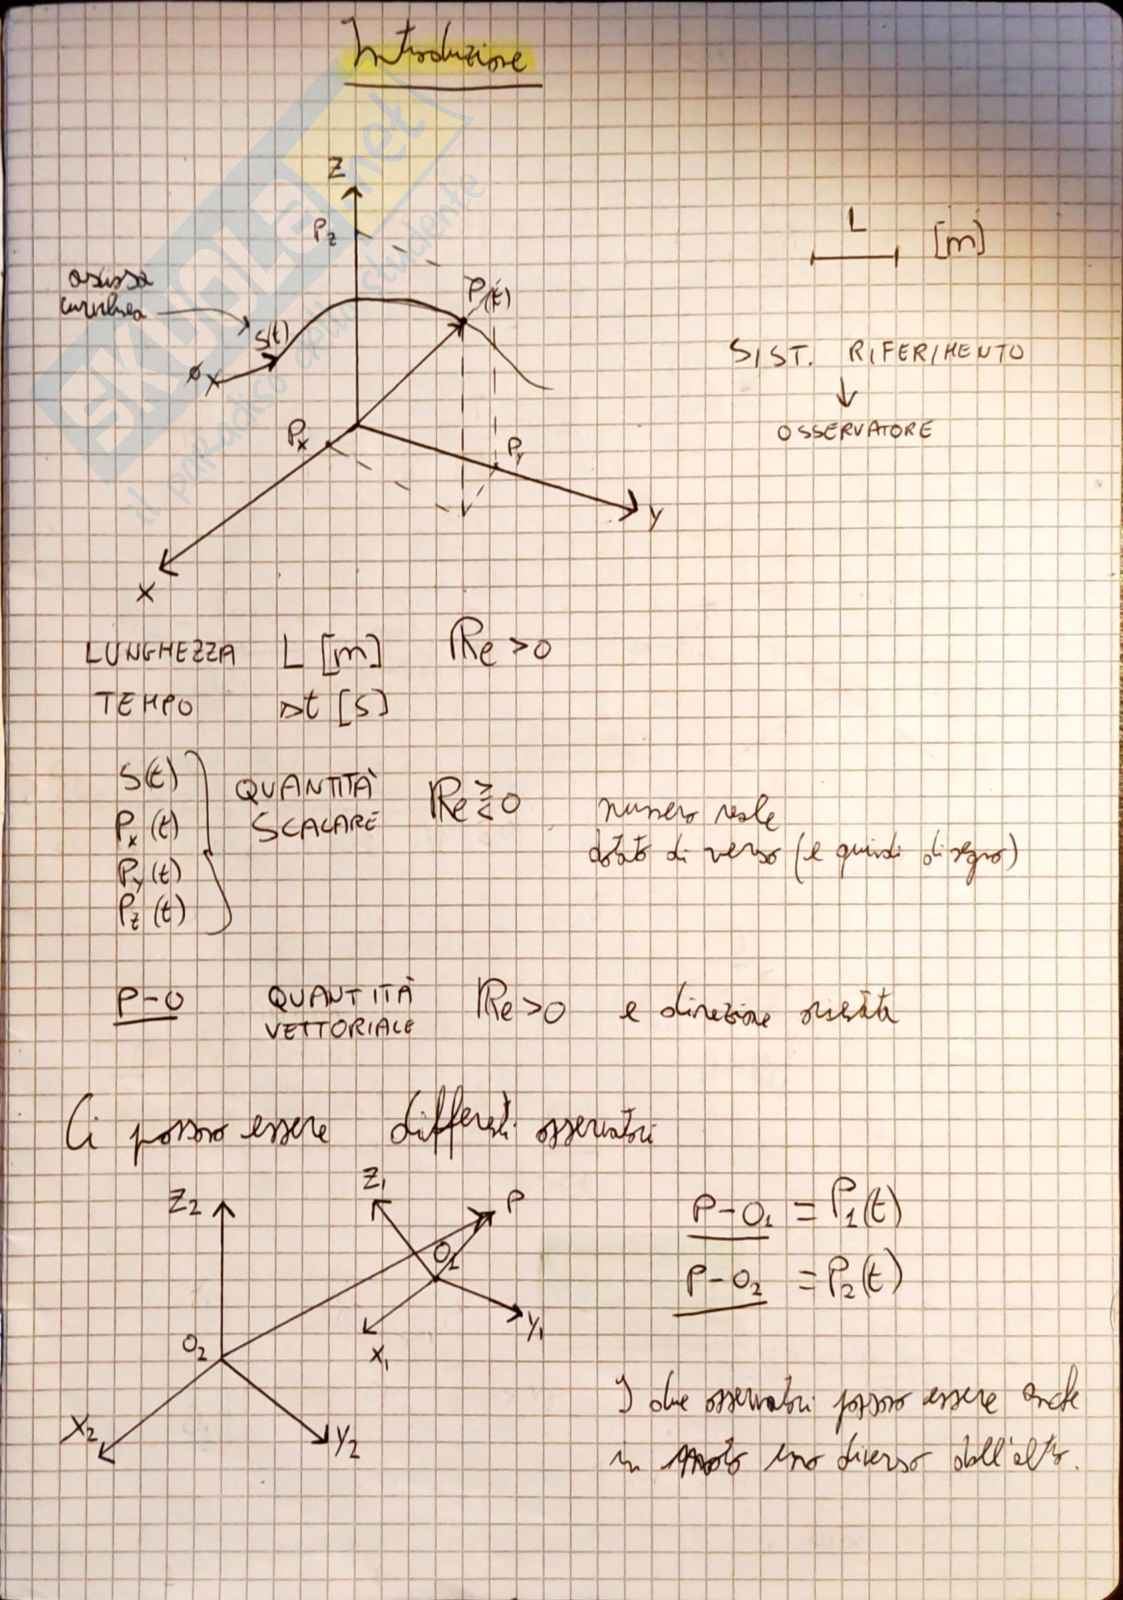 Introduzione
Z
Pz
ascissa
curvilinea
S(t)
P(t)
L
[m]
SIST. RIFERIMENTO
↓
OSSERVATORE
Px
Py
Y
X
LUNGHEZZA L [m] Re > 0
TEMPO Δt [s]
S(t)
Px (t)
Py (t)
Pz (t)
QUANTITÀ
SCALARE
Re ⪌ 0
numero reale
dotato di verso (e quindi di segno)
P-O QUANTITÀ
VETTORIALE
Re > 0 e direzione orientata
Ci possono essere differenti osservatori
Z2
Z1
P
O1
O2
X1
Y1
X2
Y2
P-O1 = P1(t)
P-O2 = P2(t)
I due osservatori possono essere anche
in moto uno diverso dall'altro.
SKUOLA.net
il paradiso dello studente